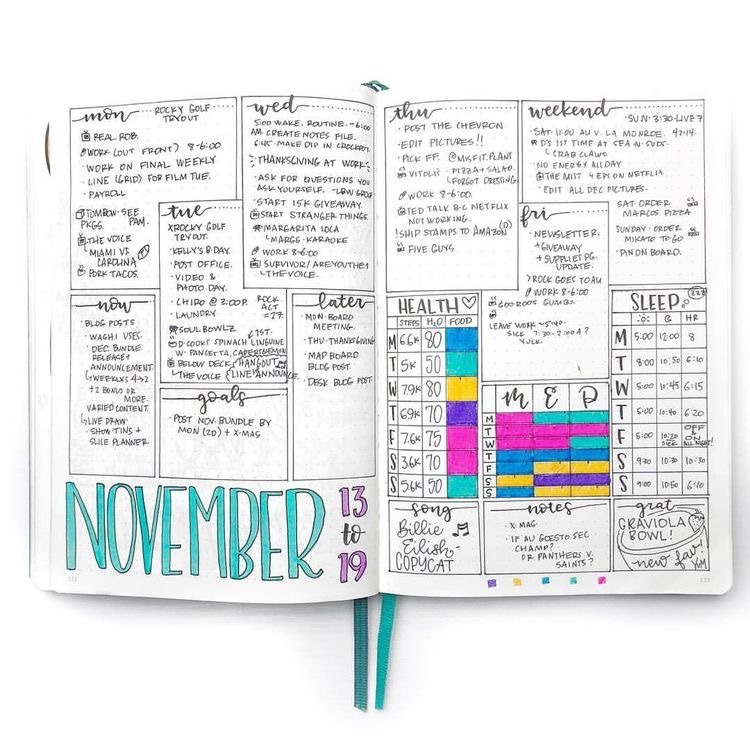 mon
ROCKY GOLF
TRYOUT
REAL ROB.
WORK (OUT FRONT) 8-6:00
WORK ON FINAL WEEKLY
LINE (GRID) FOR FILM TUE.
PAYROLL
TOMBOW-SEE
PKGS. PAM.
THE VOICE
MIAMI V.
CAROLINA
PORK TACOS.
tue
XROCKY GOLF
TRYOUT.
KELLY'S B-DAY.
POST OFFICE.
VIDEO &
PHOTO DAY.
CHIRO @ 2:00P.
LAUNDRY
ROCK
ACT
=27.
SOUL BOWLZ
1ST.
D: COOKS SPINACH LINGUINE
W/ PANCETTA,
BELOW DECK
HANGOUT
THE VOICE
LINE ANNOUNCE.
wed
5:00 WAKE. ROUTINE. -6:00
AM CREATE NOTES FILE.
6:45 MAKE DIP IN CROCKPOT.
THANKSGIVING AT WORK
ASK FOR QUESTIONS YOU
ASK YOURSELF. -LBW GROUP
START 15K GIVEAWAY.
START STRANGER THINGS.
MARGARITA LOCA
MARGS KARAOKE
WORK 8-6:00
SURVIVOR/AREYOUTHE1
THE VOICE.
now
BLOG POSTS
WASHI USES.
DEC. BUNDLE
RELEASE +
ANNOUNCEMENT.
WEEKLYS 4-52
+ 2 BONUS OR
MORE.
VARIED CONTENT.
LIVE DRAW.
SHOW TINS +
SLICE PLANNER
goals
POST NOV. BUNDLE BY
MON (20) + X-MAS
later
MON-BOARD
MEETING.
THU-THANKSGIVING
MAP BOARD
BLOG POST.
DESK BLOG POST.
NOVEMBER
13
to
19
132
thu
POST THE CHEVRON
EDIT PICTURES!!
PICK FF. @MISFIT.PLANT
VITOLI'S PIZZA + SALAD.
FORGOT DRESSING
WORK 8-6:00
TED TALK B-C NETFLIX
NOT WORKING.
!SHIP STAMPS TO AMAZON (D)
FIVE GUYS
weekend
SUN: 3:30-LIVE 7
SAT: 11:00 AU V. LA MONROE. 42-14.
D'S 1ST TIME AT SEA-N-SUDS.
CRAB CLAWS
NO ENERGY ALL DAY
THE MIST 4 EPS ON NETFLIX.
EDIT ALL DEC. PICTURES.
SAT: ORDER
MARCOS PIZZA
SUNDAY: ORDER
MIKATO TO GO
PIN ON BOARD.
fri
NEWSLETTER.
+GIVEAWAY
+ SUPPLIES PG.
UPDATE.
ROCK GOES TO AU
WORK 8-6:00
GUMBO.
LEAVE WORK ~5:40.
SICK 7:30-2:00A?
YUCK.
HEALTH
STEPS H2O FOOD
M 6.6K 80
T 5K 50
W 7.9K 80
T 6.9K 70
F 7.6K 75
S 3.6K 70
S 5.6K 50
M E D
M
T
W
T
F
S
S
SLEEP
ZZZ
HR
M 5:00 12:00 8
T 8:00 10:50 6:10
W 5:00 10:45 6:15
T 5:00 10:40 6:20
F 5:00 10:20 SICK OFF & ON ALL NIGHT!
S 9:30 10:30 10:30
S 9:00 10:50 6:10
song
Billie
Eilish-
COPYCAT
notes
X-MAG
IF AU GOES TO SEC
CHAMP?
OR PANTHERS V.
SAINTS?
grat
GRAVIOLA
BOWL!
new fav!
YUM
133